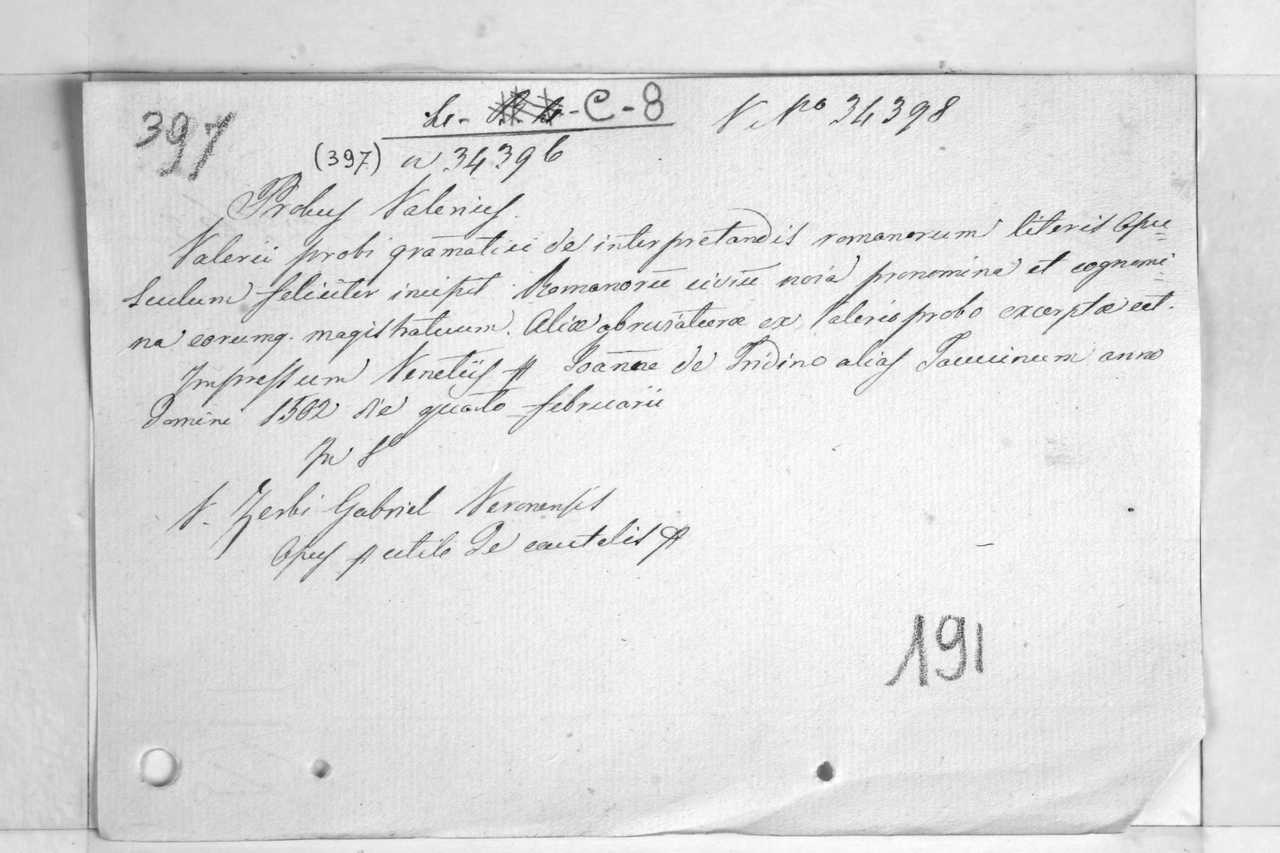 397
C-8
N. Nro 34398
(397) a 34396
Probus Valerius.
Valerii probi gramatici de interpretandis romanorum literis Opu=
sculum feliciter incipit. Romanorū civiū noīa pronomina et cognomi=
na eorumq. magistratuum. Aliæ abreviaturæ ex Valerio probo excerptæ ect.
Impressum Venetiis Joānne de Tridino alias Tacuinum anno
Domini 1502 die quarto februarii
in
V. Zerbi Gabriel Veronensis
Opus utile de cautelis
191